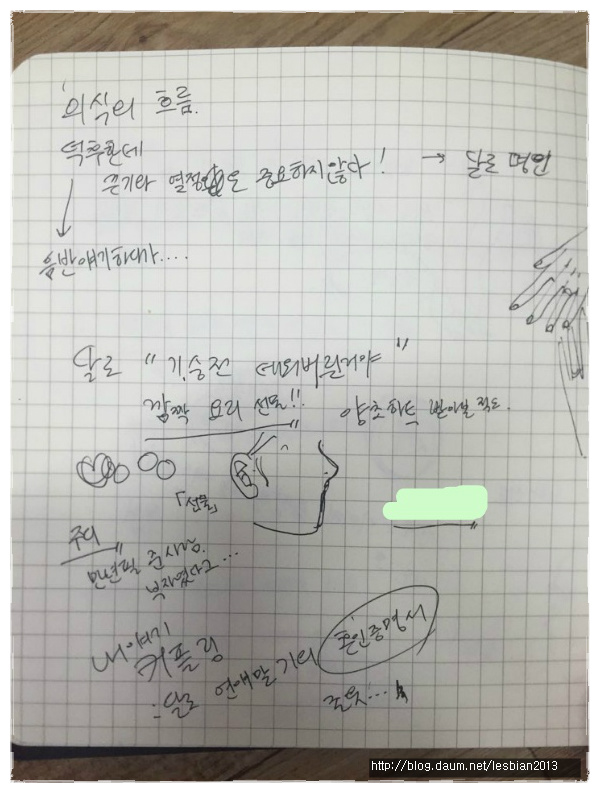 의식의 흐름.
덕후한테
끈기와 열정은 중요하지않다! → 달로 명언
음반얘기하다가....
달로 "기.승전 데이버린거야"
깜짝 요리 선물!! 양초하트 받아본 적도.
「선물」
주디
만년필 준 사람.
부자였다고...
내 이야기
커플링
:달로 연애말기의 혼인증명서
존잇...
http://blog.daum.net/lesbian2013